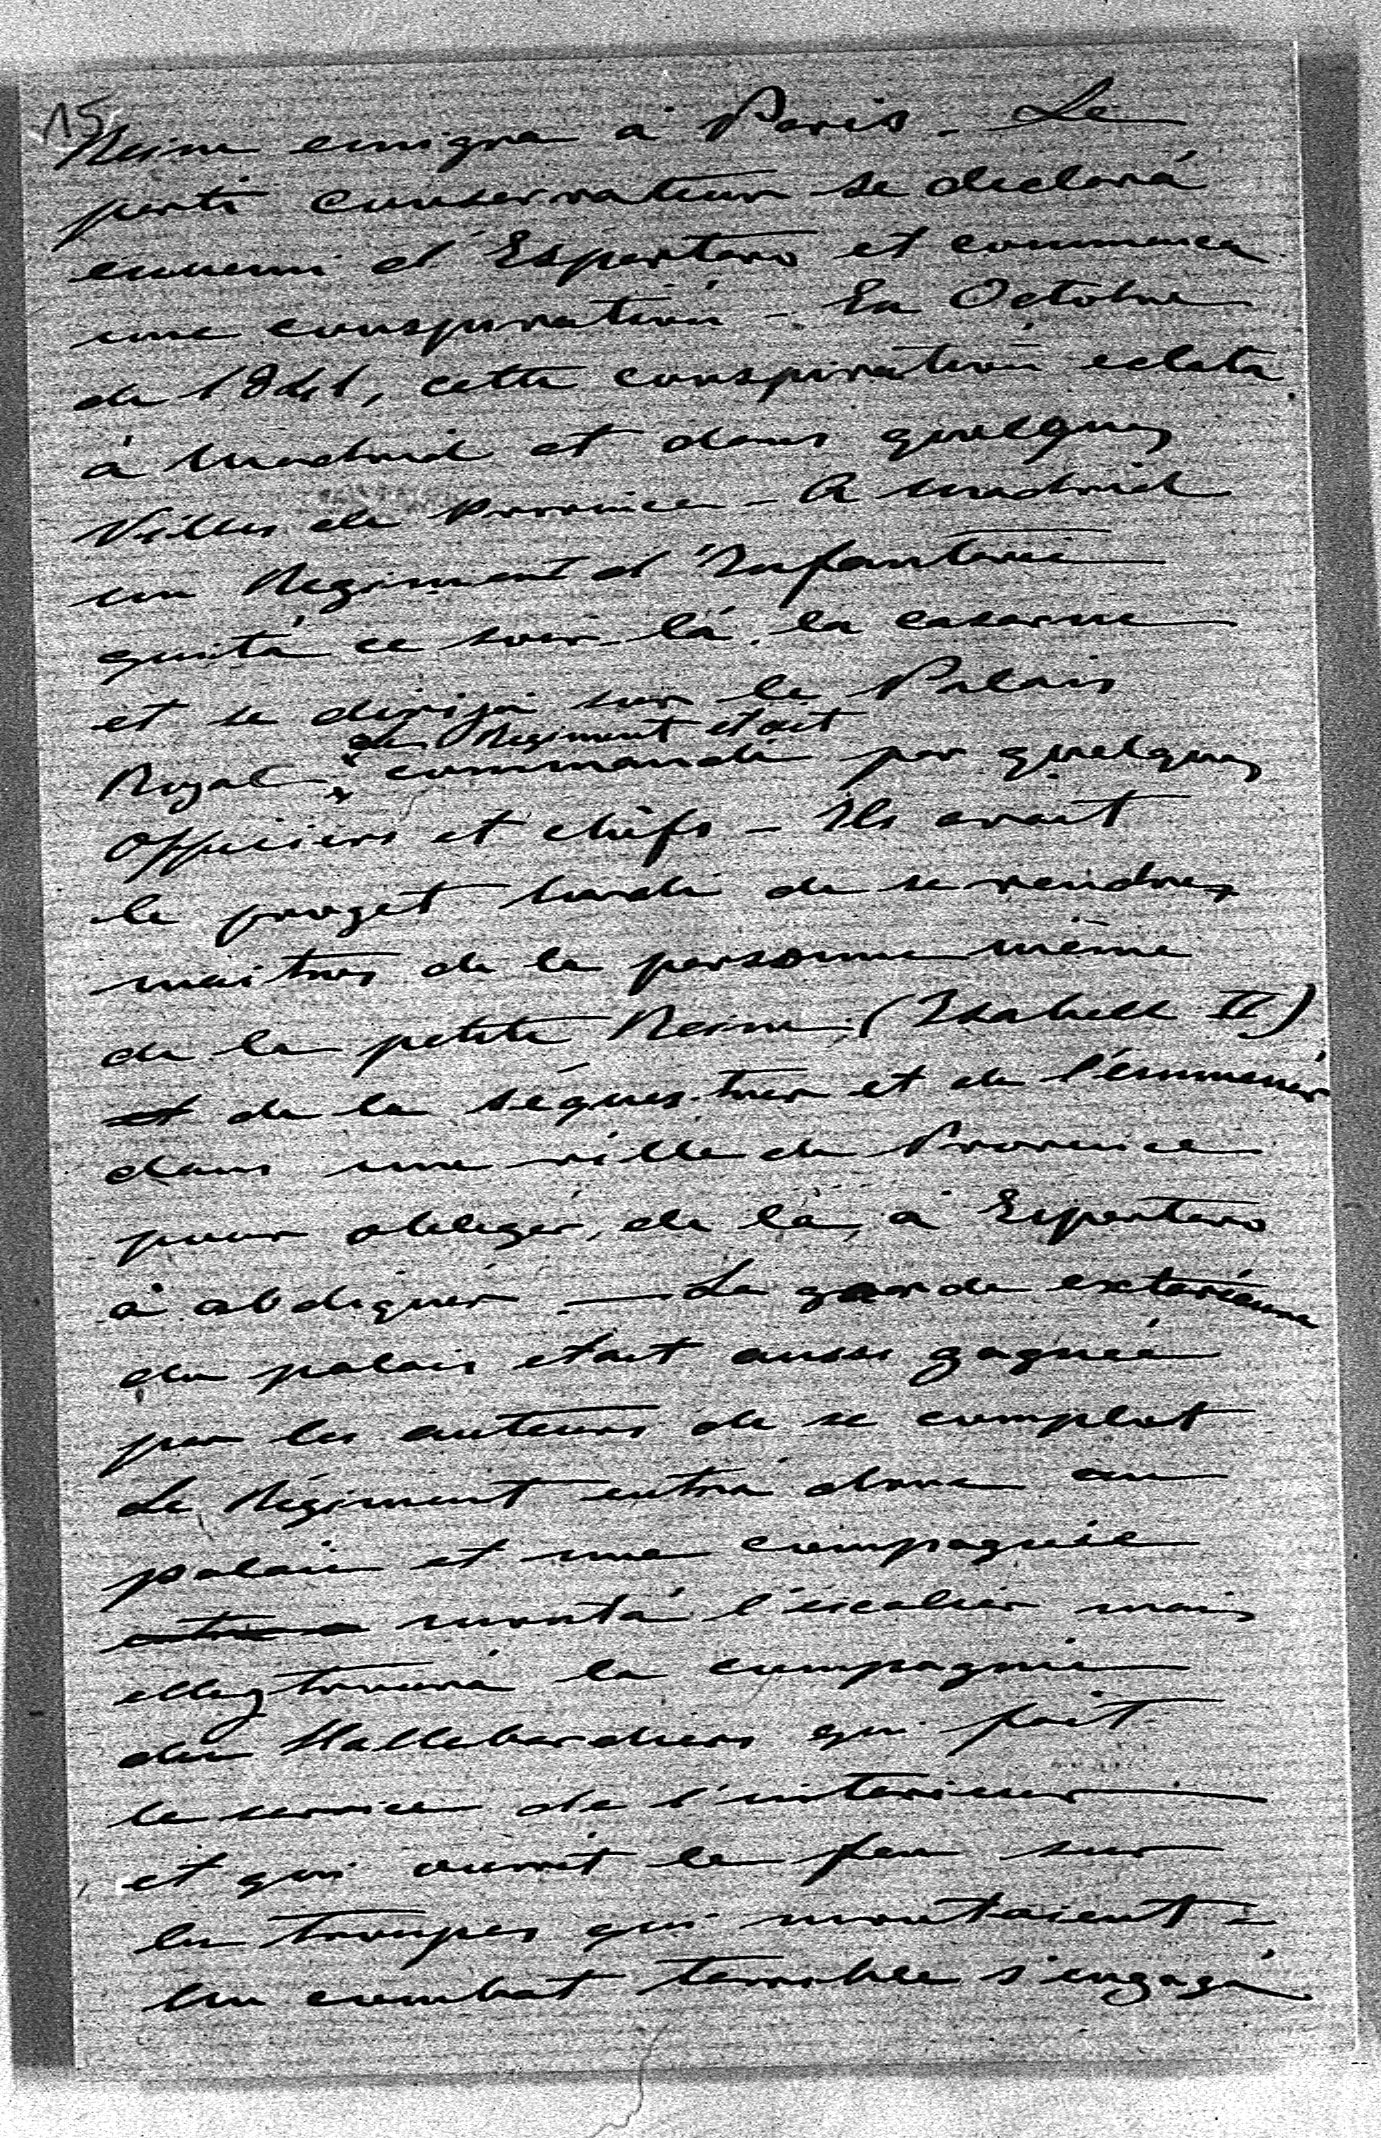 15
Reine emigra a Paris. Le
parti conservateur se declará
ennemi d'Espartero et commenca
une conspiratión - En Octobre
de 1841, cette conspiratión eclata
à Madrid et dans quelques
Villes de Province - A Madrid
un Regiment d'Infanterie
quitá ce soir là, la caserne
et se dirijá sur le Palais
Le Regiment etait
Royal commandé par quelques
Officiers et chèfs - Ils avait
le proget hardi de se rendre
maitres de la personne même
de la petite Reine (Isabelle II)
et de la séquestrer et de l'emmenér
dans une ville de Province
pour obligér, de là, a Espartero
à abdiquér. - La garde extérieure
du palais etait aussi gagnée
par les auteurs de se complot
Le Régiment entrá donc au
palais et une compagnie
entra montá l'escalier mais
elle y trouvá la compagnie
des Hallebardiers qui fait
le service de l'interieur
et qui ouvrit le feu sur
les troupes qui montaient -
Un combat terrible s'engagá